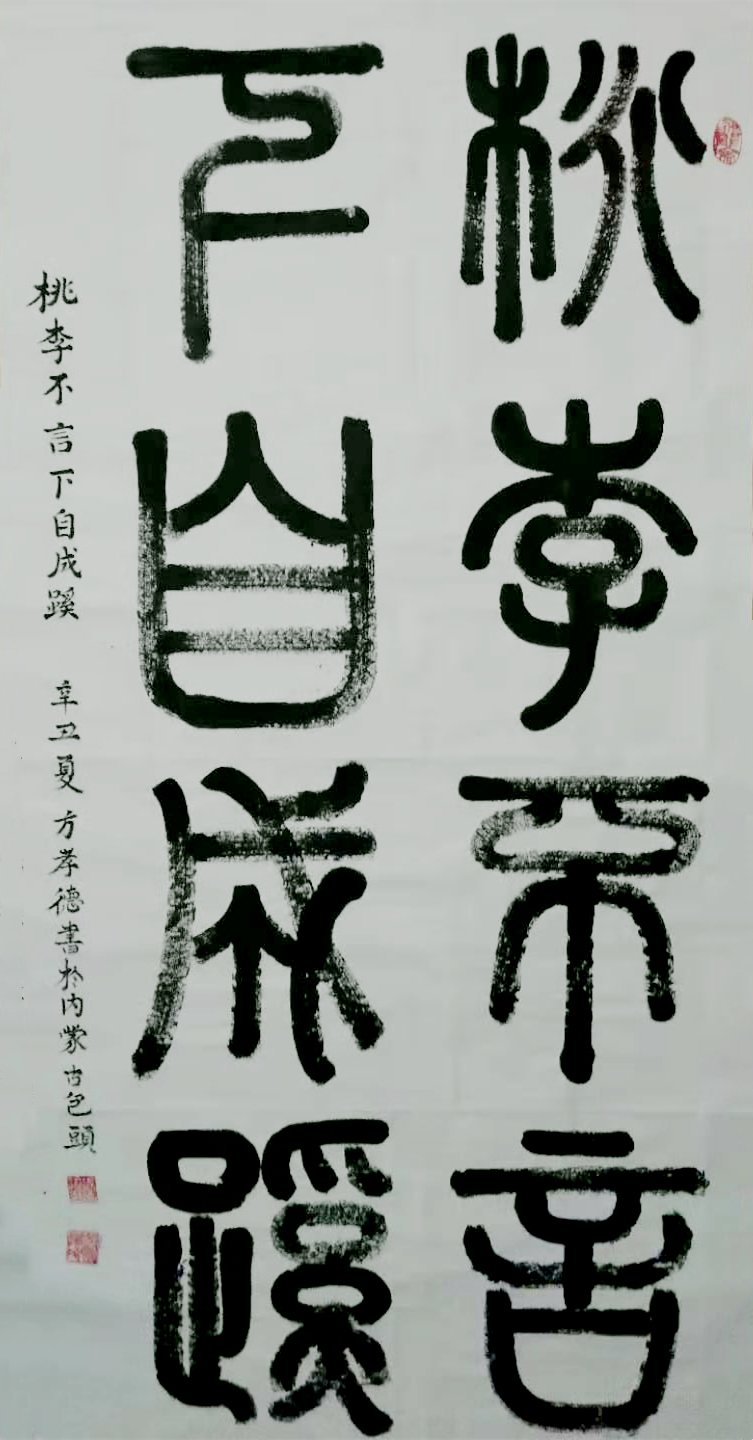 桃李不言
下自成蹊
桃李不言下自成蹊 辛丑夏 方孝德書於内蒙古包頭